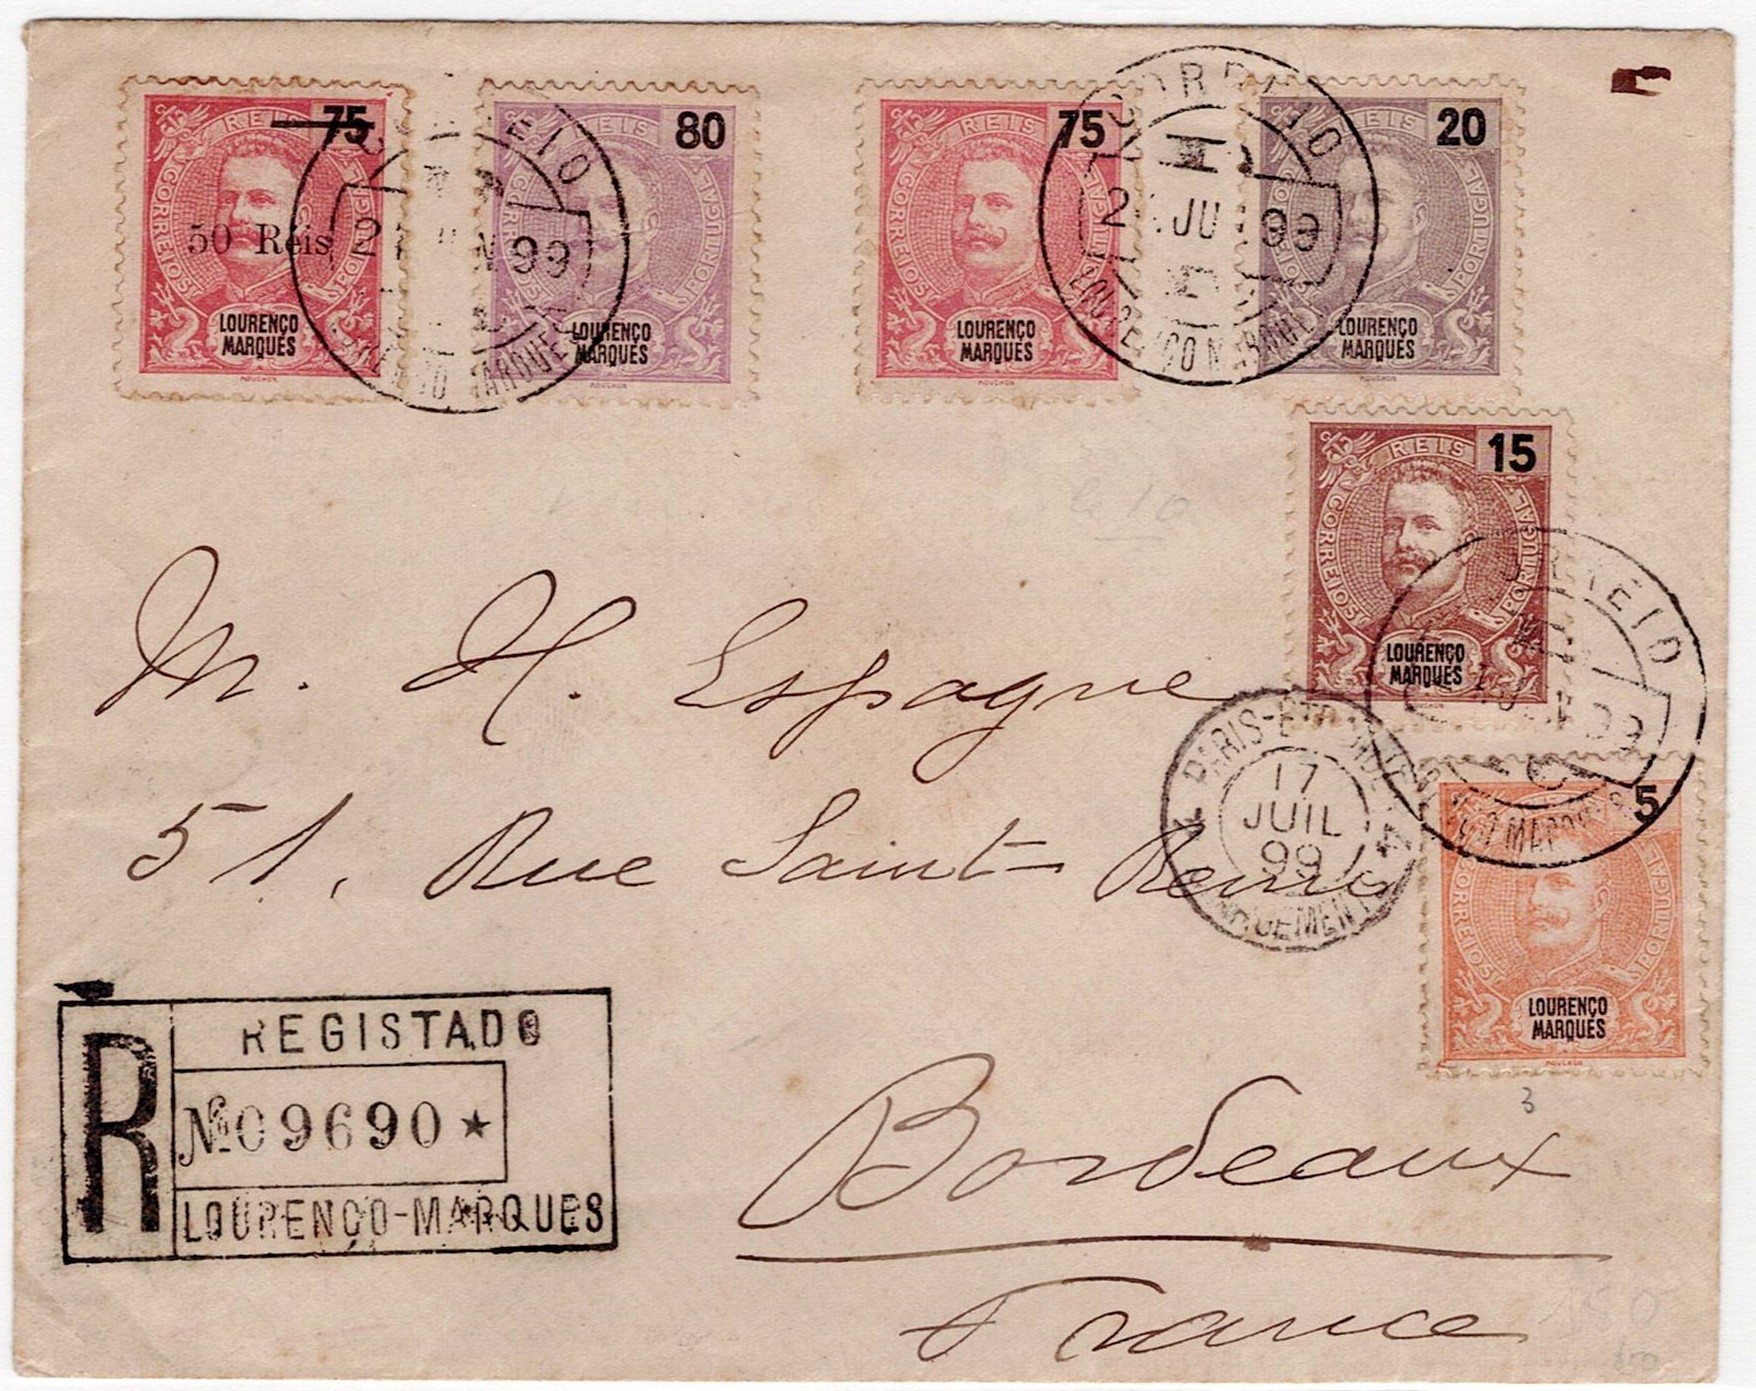 REIS 75
CORREIOS
PORTUGAL
50 Reis
LOURENÇO
MARQUES
MOUCHON
REIS 80
CORREIOS
PORTUGAL
LOURENÇO
MARQUES
MOUCHON
CORREIO
99
LOURENÇO MARQUES
REIS 75
CORREIOS
PORTUGAL
LOURENÇO
MARQUES
MOUCHON
REIS 20
CORREIOS
PORTUGAL
LOURENÇO
MARQUES
MOUCHON
CORREIO
JUN 99
LOURENÇO MARQUES
REIS 15
CORREIOS
PORTUGAL
LOURENÇO
MARQUES
MOUCHON
CORREIO
99
LOURENÇO MARQUES
M. H. Espagne
51, Rue Saint-Remi
PARIS-ÉTRANGER
17
JUIL
99
CHARGEMENTS
5
CORREIOS
PORTUGAL
LOURENÇO
MARQUES
MOUCHON
3
R
REGISTADO
No. 09690 ★
LOURENÇO-MARQUES
Bordeaux
France